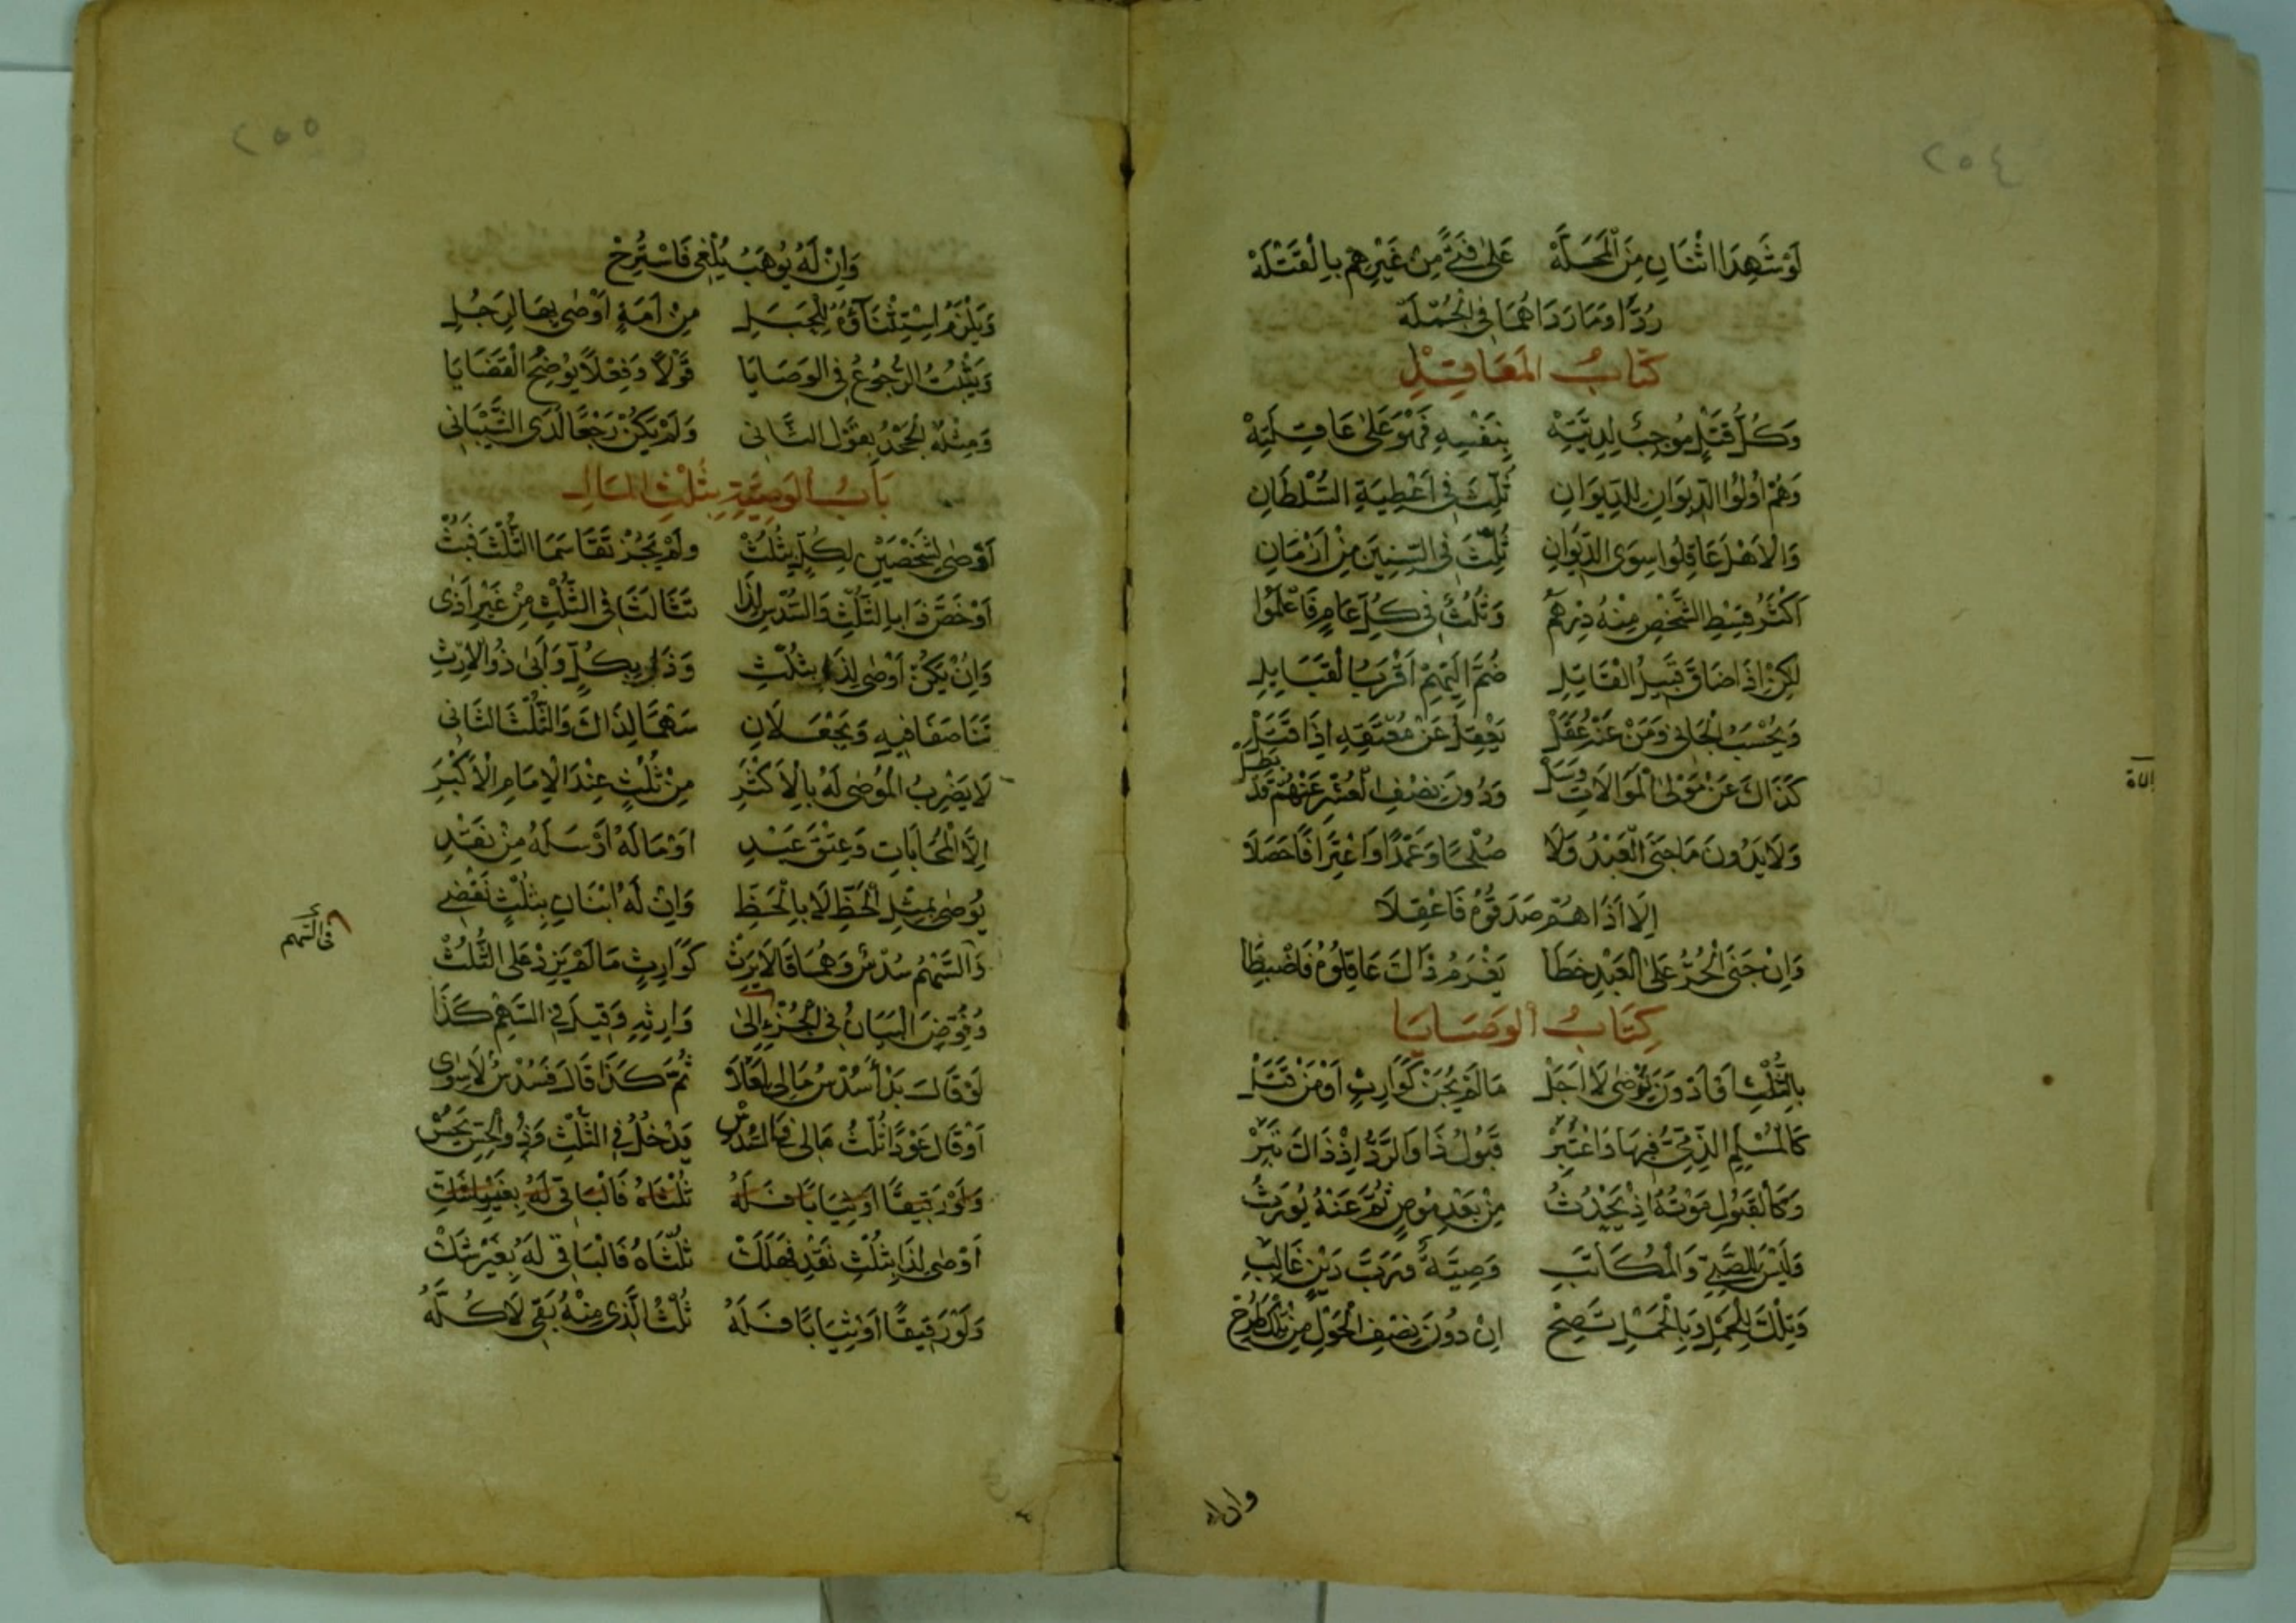 ٢٥٤
لَوْ شَهِدَا اثْنَانِ مِنَ الْمَحَلَّهْ عَلَى فَتًى مِنْ غَيْرِهِمْ بِالْقَتْلَهْ
رُدَّا وَمَا رَدَاهُمَا فِي الْجُمْلَهْ
كِتَابُ الْمَعَاقِلِ
وَكُلُّ قَتْلٍ مُوجِبٌ لِدِيَّتِهْ بِنَفْسِهِ فَهْوَ عَلَى عَاقِلَتِهْ
وَهُمْ أُولُوا الدِّيوَانِ لِلدِّيوَانِ ثُلِّثَ فِي أَعْطِيَةِ السُّلْطَانِ
وَالْأَهْلَ عَاقِلُوا سِوَى الدِّيوَانِ ثُلِّثَ فِي السِّنِينَ مِنْ أَزْمَانِ
أَكْثَرُ قِسْطِ الشَّخْصِ مِنْهُ دِرْهَمُ وَثُلُثٌ فِي كُلِّ عَامٍ فَاعْلَمُوا
لَكِنْ إِذَا ضَاقَ قَبِيلُ الْقَاتِلِ ضُمَّ إِلَيْهِمْ أَقْرَبُ الْقَبَايِلِ
وَيُحْسَبُ الْجَانِي وَمَنْ عَنْهُ عُقَلْ يَعْقِلُ عَنْ مُعْتَقِهِ إِذَا قَتَلْ
كَذَاكَ عَنْ مَوْلَى الْمَوَالَاتِ وَسَلْ وَدُونَ نِصْفِ الْعُشْرِ عَنْهُمْ قَدْ بَطَلْ
وَلَا يَدُونَ مَا جَنَى الْعَبْدُ وَلَا صُلْحًا وَعَمْدًا وَاعْتِرَافًا حَصَلَا
إِلَّا إِذَا هُمْ صَدَقُوهُ فَاعْقِلَا
وَإِنْ جَنَى الْحُرُّ عَلَى الْعَبْدِ خَطَا يَغْرَمُ ذَاكَ عَاقِلُوهُ فَاضْبِطَا
كِتَابُ الْوَصَايَا
بِالثُّلْثِ أَوْ أَدْوَنَ يُوصَى لَا أَجَلْ مَا لَمْ يُجَزْ كَوَارِثٍ أَوْ مَنْ قَتَلْ
كَالْمُسْلِمِ الذِّمِّيُّ فِيهَا وَاعْتُبِرْ قَبُولُ ذَا وَالرَّدُّ إِذْ ذَاكَ نُبِرْ
وَكَالْقَبُولِ مَوْتُهُ إِذْ يَحْدُثُ مِنْ بَعْدِ مُوصٍ ثُمَّ عَنْهُ يُورَثُ
وَلَيْسَ لِلصَّبِيِّ وَالْمُكَاتَبِ وَصِيَّةٌ وَرَبِّ دَيْنٍ غَالِبِ
وَتِلْكَ لِلْحَمْلِ وَبِالْحَمْلِ تَصِحْ إِنْ دُونَ نِصْفِ الْحَوْلِ مِنْ تِلْكَ طُرِحْ
٢٥٥
وَإِنْ لَهُ يُوهَبُ يُلْغَى فَاسْتَرِحْ
وَيَلْزَمُ اسْتِثْنَآؤُهُ لِلْحَبَلِ مِنْ أَمَةٍ أَوْصَى بِهَا لِرَجُلِ
وَيَثْبُتُ الرُّجُوعُ فِي الْوَصَايَا قَوْلًا وَفِعْلًا يُوضِحُ الْقَضَايَا
وَمِثْلُهُ الْجَحْدُ بِقَوْلِ الثَّانِي وَلَمْ يَكُنْ رَجْعًا لَدَى الشَّيْبَانِي
بَابُ الْوَصِيَّةِ بِثُلْثِ الْمَالِ
أَوْصَى لِشَخْصَيْنِ لِكُلٍّ بِثُلُثْ وَلَمْ يَجُزْ تَقَاسَمَا الثُّلْثَ فَبُثْ
أَوْ خَصَّ ذَا بِالثُّلْثِ وَالسُّدْسِ لِذَا تَثَالَثَا فِي الثُّلْثِ مِنْ غَيْرِ أَذَى
وَإِنْ يَكُنْ أَوْصَى لِذَا بِثُلْثِ وَذَا بِكُلٍّ وَأَبَى ذُو الْإِرْثِ
تَنَاصَفَا فِيهِ وَيَجْعَلَانِ سَهْمًا لِذَاكَ وَالثُّلْثَ الثَّانِي
لَا يَضْرِبُ الْمُوصَى لَهُ بِالْأَكْثَرِ مِنْ ثُلْثٍ عِنْدَ الْإِمَامِ الْأَكْبَرِ
إِلَّا الْمُحَابَاتِ وَعِتْقَ عَبْدِ أَوْ مَا لَهُ أَرْسَلَهُ مِنْ نَقْدِ
يُوصَى بِمِثْلِ الْحَظِّ لَا بِالْحَظِّ وَإِنْ لَهُ ابْنَانِ بِثُلْثٍ نَقْضِي
وَالسَّهْمُ سُدْسٌ وَهُمَا قَالَا يَرِثْ كَوَارِثٍ مَا لَمْ يَزِدْ عَلَى الثُّلُثْ
وَفُوِّضَ الْبَيَانُ فِي الْجُزْءِ إِلَى وَارِثِهِ وَقِيلَ فِي السَّهْمِ كَذَا
لَوْ قَالَ بَدْأً سُدْسُ مَالِي ثُمَّ كَذَا قَالَ فَسُدْسٌ لَا سِوَى
أَوْ قَالَ عَوْدًا ثُلْثُ مَالِي فَالسُّدْسْ يَدْخُلُ فِي الثُّلْثِ
وَلَوْ رَقِيقًا أَوْ ثِيَابًا فَلَهُ ثُلْثَاهُ فَالْبَاقِي لَهُ بِغَيْرِ
أَوْصَى لِذَا بِثُلْثِ نَقْدٍ فَهَلَكْ ثُلْثَاهُ فَالْبَاقِي لَهُ بِغَيْرِ شَكْ
وَلَوْ رَقِيقًا أَوْ ثِيَابًا فَلَهُ ثُلْثُ الَّذِي مِنْهُ بَقِي لَا كُلَّهُ
في السهم
وان له